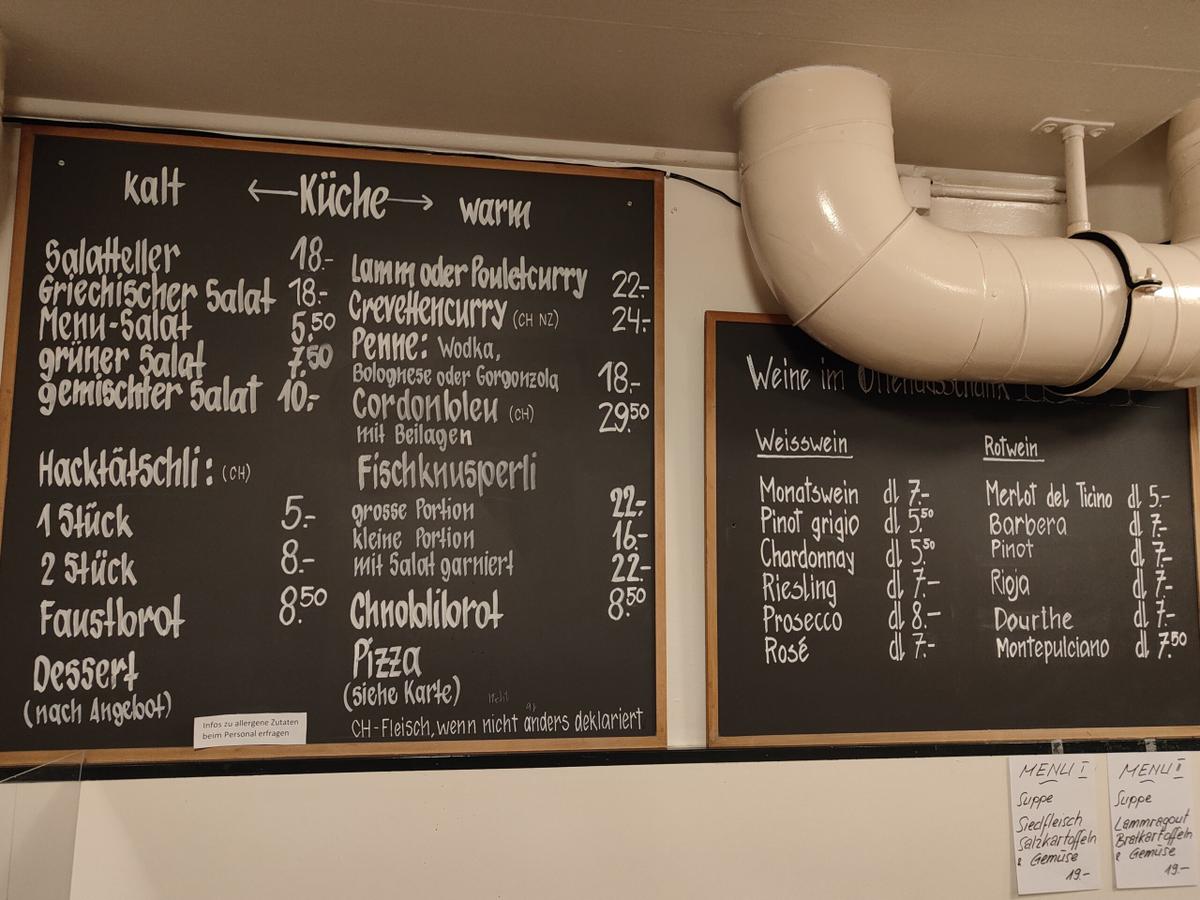 kalt
←Küche→
warm
Salatteller 18.-
Griechischer Salat 18.-
Menu-Salat 5.50
grüner Salat 7.50
gemischter Salat 10.-
Hacktätschli: (CH)
1 Stück 5.-
2 Stück 8.-
Faustbrot 8.50
Dessert
(nach Angebot)
Infos zu allergene Zutaten
beim Personal erfragen
Lamm oder Pouletcurry 22.-
Crevettencurry (CH NZ) 24.-
Penne: Wodka,
Bolognese oder Gorgonzola 18.-
Cordonbleu (CH) 29.50
mit Beilagen
Fischknusperli
grosse Portion 22.-
kleine Portion 16.-
mit Salat garniert 22.-
Chnoblibrot 8.50
Pizza
(siehe Karte)
CH-Fleisch, wenn nicht anders deklariert
Weine im Offenausschank
Weisswein
Monatswein dl 7.-
Pinot grigio dl 5.50
Chardonnay dl 5.50
Riesling dl 7.-
Prosecco dl 8.-
Rosé dl 7.-
Rotwein
Merlot del Ticino dl 5.-
Barbera dl 7.-
Pinot dl 7.-
Rioja dl 7.-
Dourthe dl 7.-
Montepulciano dl 7.50
MENU I
Suppe
Siedfleisch
Salzkartoffeln
& Gemüse
19.-
MENU II
Suppe
Lammragout
Bratkartoffeln
& Gemüse
19.-